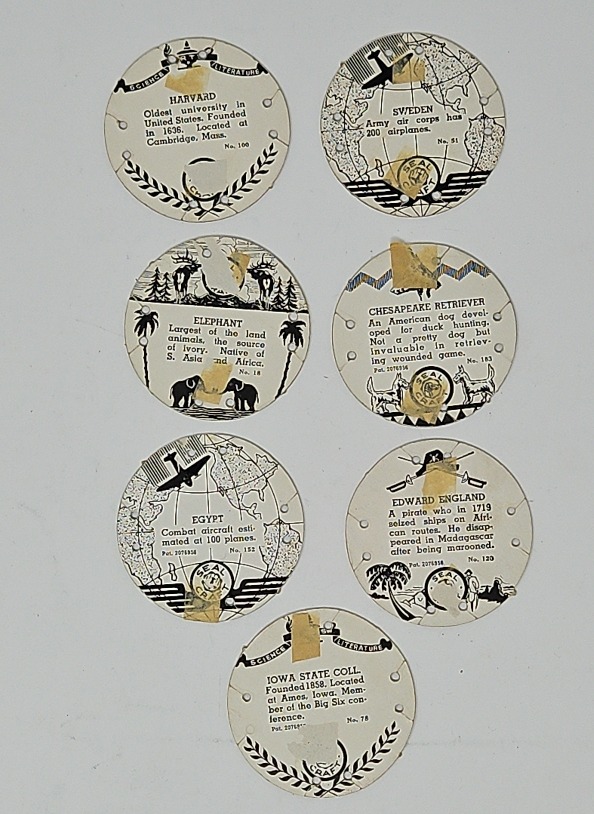 SCIENCE LITERATURE
HARVARD
Oldest university in
United States. Founded
in 1636. Located at
Cambridge, Mass.
No. 100
SWEDEN
Army air corps has
200 airplanes.
No. 51
SEAL
CRAFT
ELEPHANT
Largest of the land
animals, the source
of ivory. Native of
S. Asia and Africa.
No. 18
CHESAPEAKE RETRIEVER
An American dog devel-
oped for duck hunting.
Not a pretty dog but
invaluable in retriev-
ing wounded game.
Pat. 2076956 No. 183
SEAL
CRAFT
EGYPT
Combat aircraft esti-
mated at 100 planes.
Pat. 2076956 No. 152
SEAL
CRAFT
EDWARD ENGLAND
A pirate who in 1719
seized ships on Afri-
can routes. He disap-
peared in Madagascar
after being marooned.
Pat. 2076956 No. 120
SEAL
CRAFT
SCIENCE LITERATURE
IOWA STATE COLL.
Founded 1858. Located
at Ames, Iowa. Mem-
ber of the Big Six con-
ference.
Pat. No. 78
CRAFT